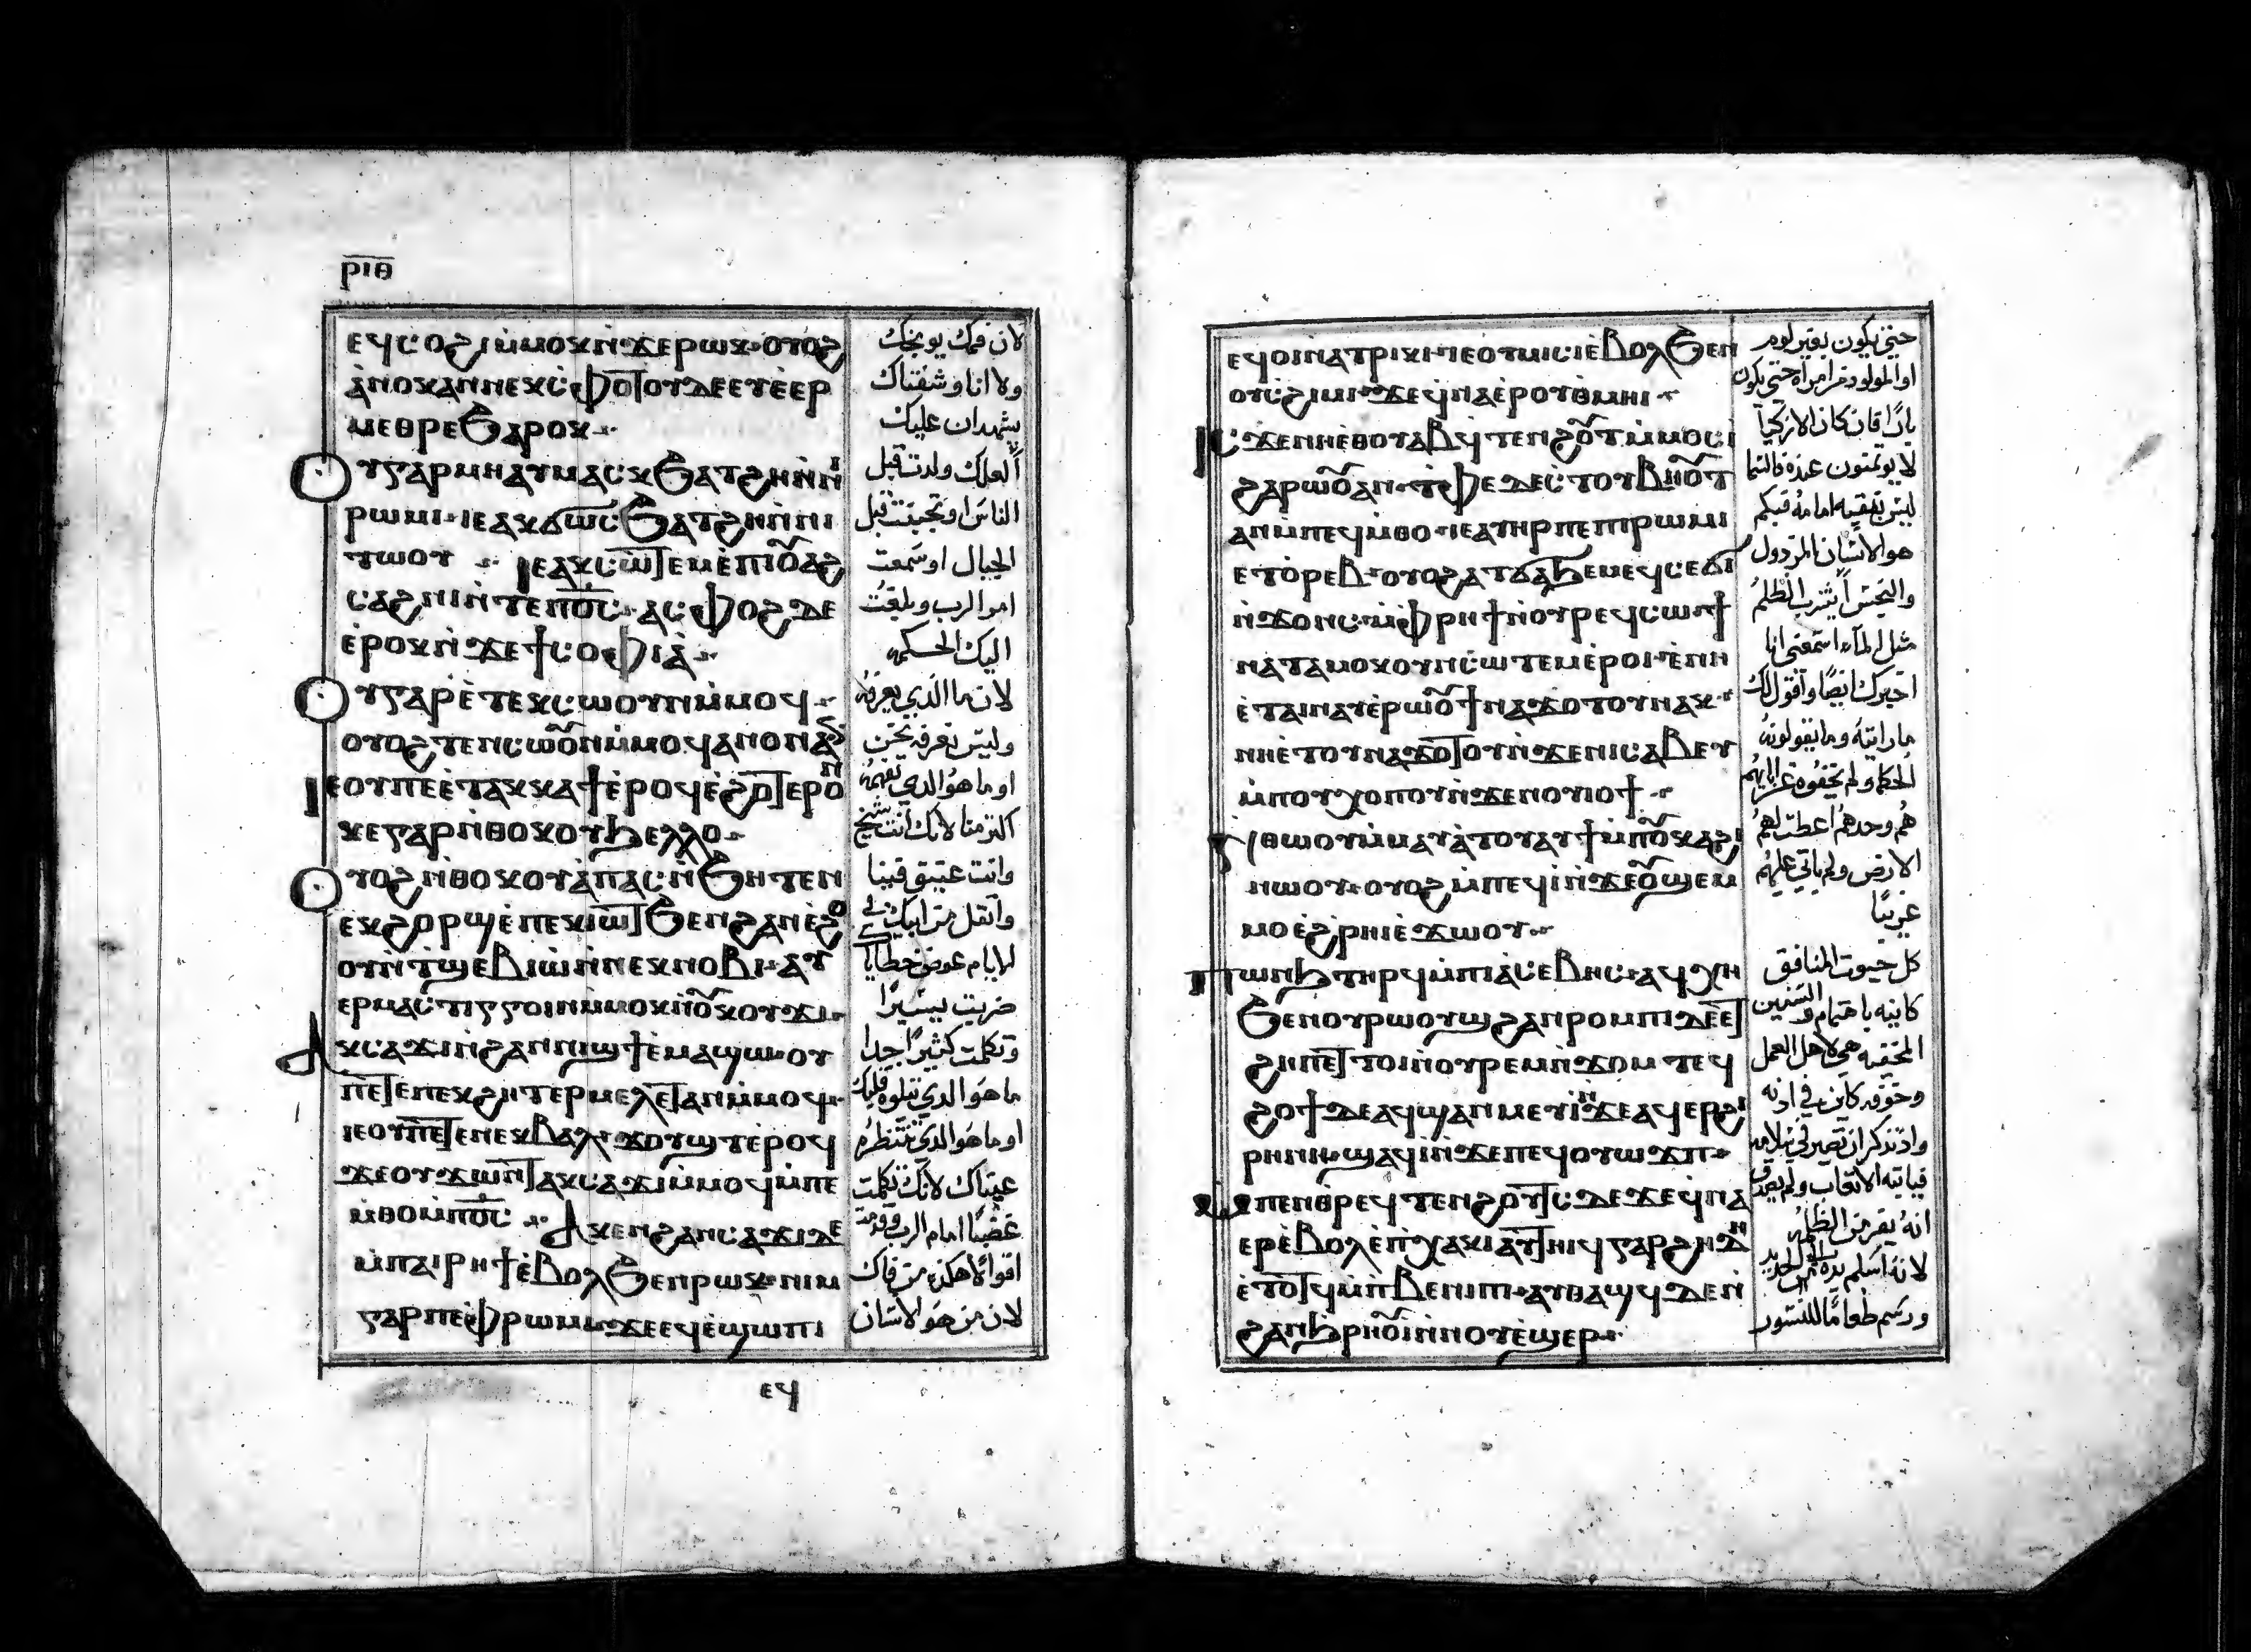 ⲣⲓⲑ
ⲉϥⲥⲟϩⲓⲙ̀ⲙⲟⲕⲛ̀ϫⲉⲣⲱⲕ ⲟⲩⲟϩ
ⲁ̀ⲛⲟⲕⲁⲛⲛⲉⲕⲥ̀ⲫⲟⲧⲟⲩⲇⲉⲉⲩⲉ̀ⲉⲣ
ⲙⲉⲑⲣⲉϧⲁⲣⲟⲕ
ⲟⲩⲅⲁⲣⲙⲏⲁⲩⲙⲁⲥⲕϧⲁⲧϩⲏⲛ̀ⲛⲓ
ⲣⲱⲙⲓ ⲓⲉⲁⲕϭⲱⲥϧⲁⲧϩⲏⲛ̀ⲛⲓ
ⲧⲱⲟⲩ ⲓⲉⲁⲕⲥⲱⲧⲉⲙⲉ̀ⲡⲓⲟⲩⲁϩ
ⲥⲁϩⲛⲓⲛ̀ⲧⲉⲡⲟ̅ⲥ̅ ⲁⲥⲫⲟϩⲇⲉ
ⲉ̀ⲣⲟⲕⲛ̀ϫⲉϯⲥⲟⲫⲓⲁ̀
ⲟⲩⲅⲁⲣⲉ̀ⲧⲉⲕⲥⲱⲟⲩⲛⲙ̀ⲙⲟϥ
ⲟⲩⲟϩⲧⲉⲛⲥⲱⲟⲩⲛⲙ̀ⲙⲟϥⲁⲛⲟⲛⲁⲛ
ⲓⲉⲟⲩⲡⲉⲉ̀ⲧⲁⲕⲕⲁϯⲉ̀ⲣⲟϥⲉ̀ϩⲟⲧⲉⲣⲟⲛ
ⲕⲉⲅⲁⲣⲛ̀ⲑⲟⲕⲟⲩϧⲉⲗⲗⲟ
ⲟⲩⲟϩⲛ̀ⲑⲟⲕⲟⲩⲁ̀ⲡⲁⲥⲛ̀ϧⲏⲧⲉⲛ
ⲉⲕϩⲟⲣϣⲉ̀ⲡⲉⲕⲓⲱⲧϧⲉⲛϩⲁⲛⲉ̀ϩⲟ
ⲟⲩⲛ̀ⲧϣⲉⲃⲓⲱ̀ⲛ̀ⲛⲉⲕⲛⲟⲃⲓ ⲁⲩ
ⲉⲣⲙⲁⲥⲧⲓⲅⲅⲟⲓⲛⲙ̀ⲙⲟⲕⲛ̀ⲟⲩⲕⲟⲩϫⲓ
ⲁⲕⲥⲁϫⲓⲛ̀ϩⲁⲛⲛⲓϣϯⲉ̀ⲙⲁϣⲱ ⲟⲩ
ⲡⲉⲧⲉⲡⲉⲕϩⲏⲧⲉⲣⲙⲉⲗⲉⲧⲁⲛⲙ̀ⲙⲟϥ
ⲓⲉⲟⲩⲡⲉⲧⲉⲛⲉⲕⲃⲁⲗ ϫⲟⲩϣⲧⲉ̀ⲣⲟϥ
ϫⲉⲟⲩϫⲱⲛⲧⲁⲕⲥⲁϫⲓⲙ̀ⲙⲟϥⲙ̀ⲡⲉ
ⲙ̀ⲑⲟⲙ̀ⲡⲟ̅ⲥ̅ ⲁⲕⲉⲛϩⲁⲛⲥⲁϫⲓⲇⲉ
ⲙ̀ⲡⲁⲓⲣⲏϯⲉ̀ⲃⲟⲗϧⲉⲛⲣⲱⲕ ⲛⲓⲙ
ⲅⲁⲣⲡⲉⲫⲣⲱⲙⲓ ϫⲉⲉϥⲉ̀ϣⲱⲡⲓ
ⲉϥ
لان فمك يوبخك
ولا انا وشفتاك
يشهدان عليك
ألعلك ولدت قبل
الناس او تجبت قبل
الجبال او سمعت
امر الرب وبلغت
اليك الحكمه
لان ما الذي يعرفه
وليس نعرفه نحن
او ما هو الدي تفهمه
اكتر منا لانك انت شيخ
وانت عتيق فينا
واتقل من ابيك في
الايام عوض خطايا
ضربت يسيرا
وتكلمت كثيرا جدا
ما هو الدي تتلوه قلبك
او ما هو الدي تنظره
عيناك لانك تكلمت
غضبا امام الرب وقدمت
اقوالا هكذى من فاك
لان من هو الانسان
ⲉϥⲟⲓⲛⲁⲧⲣⲓⲕⲓ ⲓⲉⲟⲩⲙⲓⲥⲓⲉ̀ⲃⲟⲗϧⲉⲛ
ⲟⲩⲥ̀ϩⲓⲙⲓ ϫⲉϥ̀ⲛⲁⲉ̀ⲣⲟⲩⲑ̀ⲙⲏⲓ
ⲓⲥϫⲉⲛⲏⲉ̀ⲑⲟⲩⲁⲃϥ̀ⲧⲉⲛϩⲟⲩⲧⲙ̀ⲙⲟⲥⲓ
ϩⲁⲣⲱⲟⲩⲁⲛ ⲧ̀ⲫⲉⲇⲉⲥ̀ⲧⲟⲩⲃⲏⲟⲩⲧ
ⲁⲛⲙ̀ⲡⲉϥⲙ̀ⲑⲟ ⲓⲉⲁⲧⲏⲣⲡⲉⲡⲓⲣⲱⲙⲓ
ⲉⲧⲟ̀ⲣⲉⲃ ⲟⲩⲟϩⲁⲧϭⲁϧⲉⲙⲉϥⲥⲉϭⲓ
ⲛ̀ϫⲟⲛⲥ ⲙ̀ⲫⲣⲏϯⲛ̀ⲟⲩⲣⲉϥⲥⲱⲛϯ
ⲛⲁⲧⲁⲙⲟⲕⲟⲩⲛⲥ̀ⲱⲧⲉⲙⲉ̀ⲣⲟⲓ ⲉ̀ⲛⲏ
ⲉ̀ⲧⲁⲓⲛⲁⲩⲉ̀ⲣⲱⲟⲩϯⲛⲁϫⲟⲧⲟⲩⲛⲁⲕ
ⲛⲏⲉ̀ⲧⲟⲩⲛⲁϫⲟⲧⲟⲩⲛ̀ϫⲉⲛⲓⲥⲁⲃⲉⲩ
ⲙ̀ⲡⲟⲩⲭⲟⲡⲟⲩⲛ̀ϫⲉⲛⲟⲩⲓⲟϯ
ⲛ̀ⲑⲱⲟⲩⲙ̀ⲙⲁⲩⲁ̀ⲧⲟⲩⲁⲩϯⲙ̀ⲡⲟⲩⲕⲁϩⲓ
ⲛⲱⲟⲩ ⲟⲩⲟϩⲙ̀ⲡⲉϥⲓ̀ⲛ̀ϫⲉⲟⲩϣⲉⲙ
ⲙⲟⲉ̀ϩ̀ⲣⲏⲓⲉ̀ϫⲱⲟⲩ
ⲡⲱⲛϧⲧⲏⲣϥⲙ̀ⲡⲓⲁ̀ⲥⲉⲃⲏⲥ ⲁϥⲭⲏ
ϧⲉⲛⲟⲩⲣⲱⲟⲩϣϩⲁⲛⲣⲟⲙⲡⲓⲇⲉⲉⲧ
ϩⲏⲡⲉⲧⲧⲟⲓⲛ̀ⲟⲩⲣⲉⲙⲛ̀ϫⲟⲙ ⲧⲉϥ
ϩⲟϯⲇⲉⲁϥϣⲁⲛⲙⲉⲩⲓ̀ⲛϫⲉⲁϥⲉⲣϩⲓ
ⲣⲏⲛⲏ ϣⲁϥⲓ̀ⲛ̀ϫⲉⲡⲉϥⲟⲩⲱϫⲡ
ⲙ̀ⲡⲉⲛⲑⲣⲉϥⲧⲉⲛϩⲟⲩⲧⲥ ⲇⲉϫⲉϥ̀ⲛⲁ
ⲉⲣⲉ̀ⲃⲟⲗⲉ̀ⲡ̀ⲭⲁⲕⲓ ⲁⲧⲏⲓϥⲅⲁⲣϩⲏⲇⲏ
ⲉ̀ⲧⲟⲧϥⲙ̀ⲡ̀ⲃⲉⲛⲓⲡⲓ ⲁⲩⲑⲁϣϥⲇⲉⲛ̀
ϩⲁⲛϧⲣⲏⲟⲩⲓ̀ⲛ̀ⲛⲟⲩⲉ̀ϣⲉⲣ
حتي يكون بغير لوم
او المولود من امراه حتي يكون
بارا فان كان الازكيا
لا يوتمنون عنده فالسما
ليس نقيه امامه فبكم
هو الانسان المرذول
والنجس أيشرب الظلم
مثل الماء استمعني انا
اخبرك ايضا واقول لك
ما رايته وما تقولونه
الحكما ولم يخفوه عن ابايهم
هم وحدهم اعطت لهم
الارض ولم ياتي عليهم
غريبا
كل حيوت المنافق
كاينه باهتمام والسنين
المخفيه هي لاهل العمل
وخوفه كاين في ادنه
واذ تذكر ان تصير في سلامه
فياتيه الاتعاب ولم يصدق
انه يفر من الظلمه
لانه اسلم بيده الي الحديد
ورسم طعاما للنسور